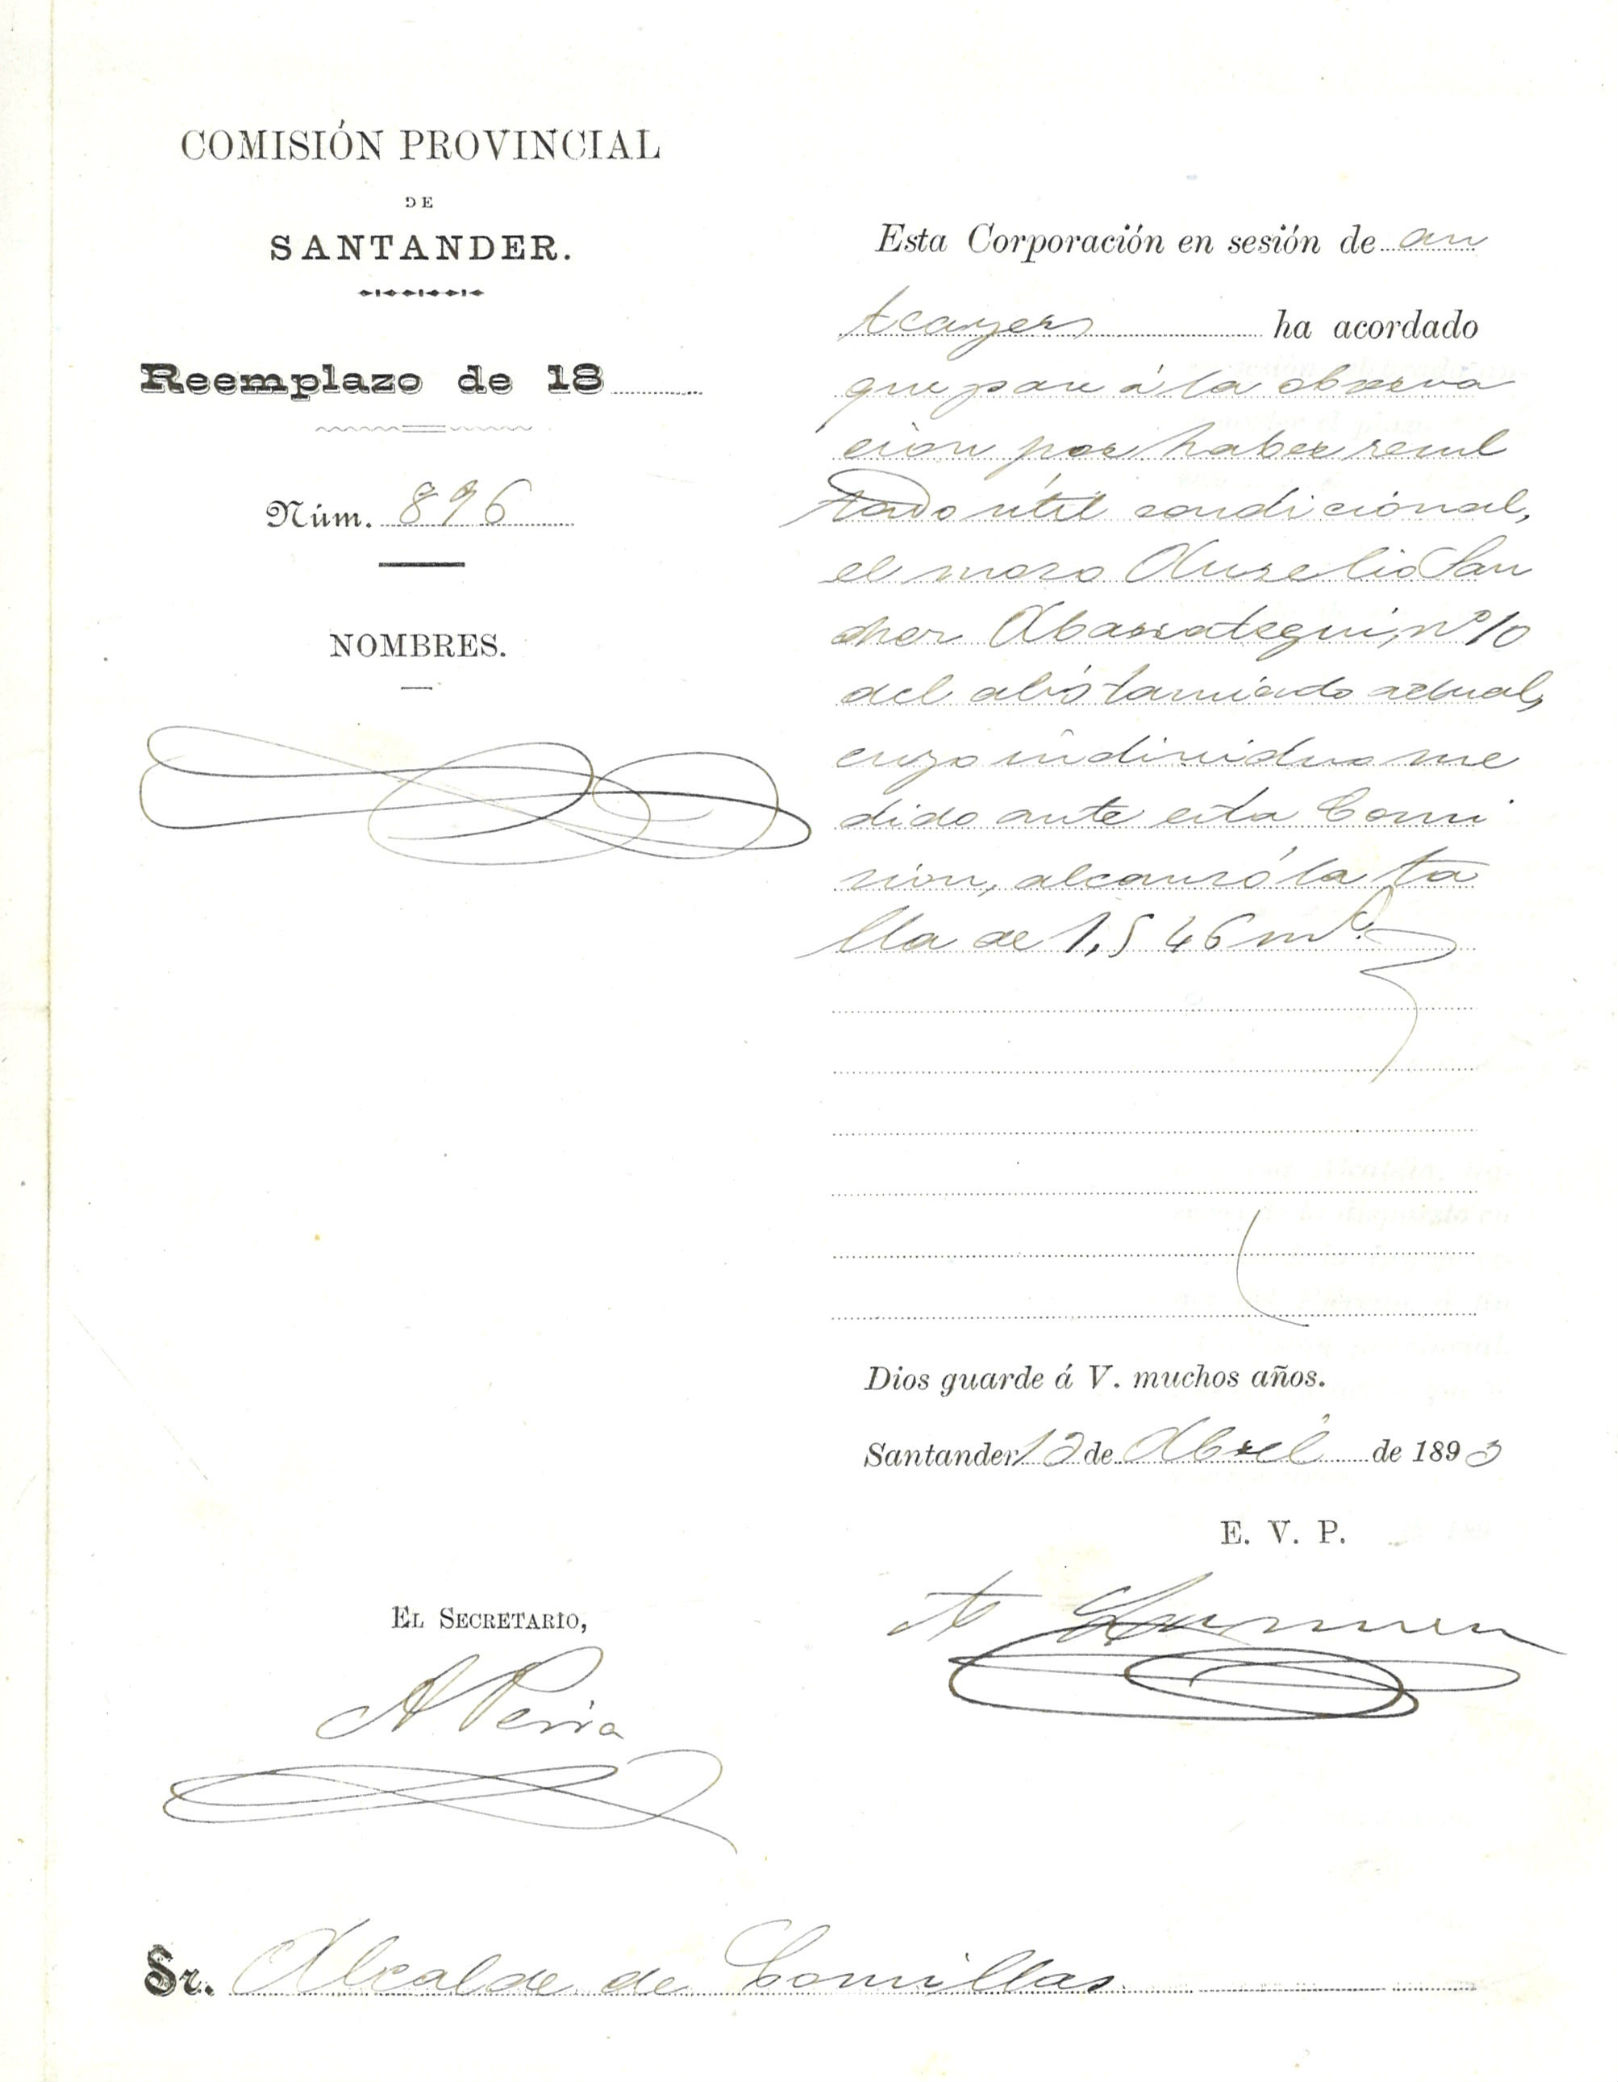 COMISIÓN PROVINCIAL
DE
SANTANDER.
Reemplazo de 18
Núm. 896
NOMBRES.
Esta Corporación en sesión de an
teayer ha acordado
que pase á la observa
ción por haber resul
tado útil condicional,
el mozo Aurelio San
chez Abarrategui, nº 10
del alistamiento actual,
cuyo individuo me
dido ante esta Comi
sion, alcanzó la ta
lla de 1,546 m
Dios guarde á V. muchos años.
Santander 12 de Abril de 1893
E. V. P.
EL SECRETARIO,
A Peria
Sr. Alcalde de Comillas